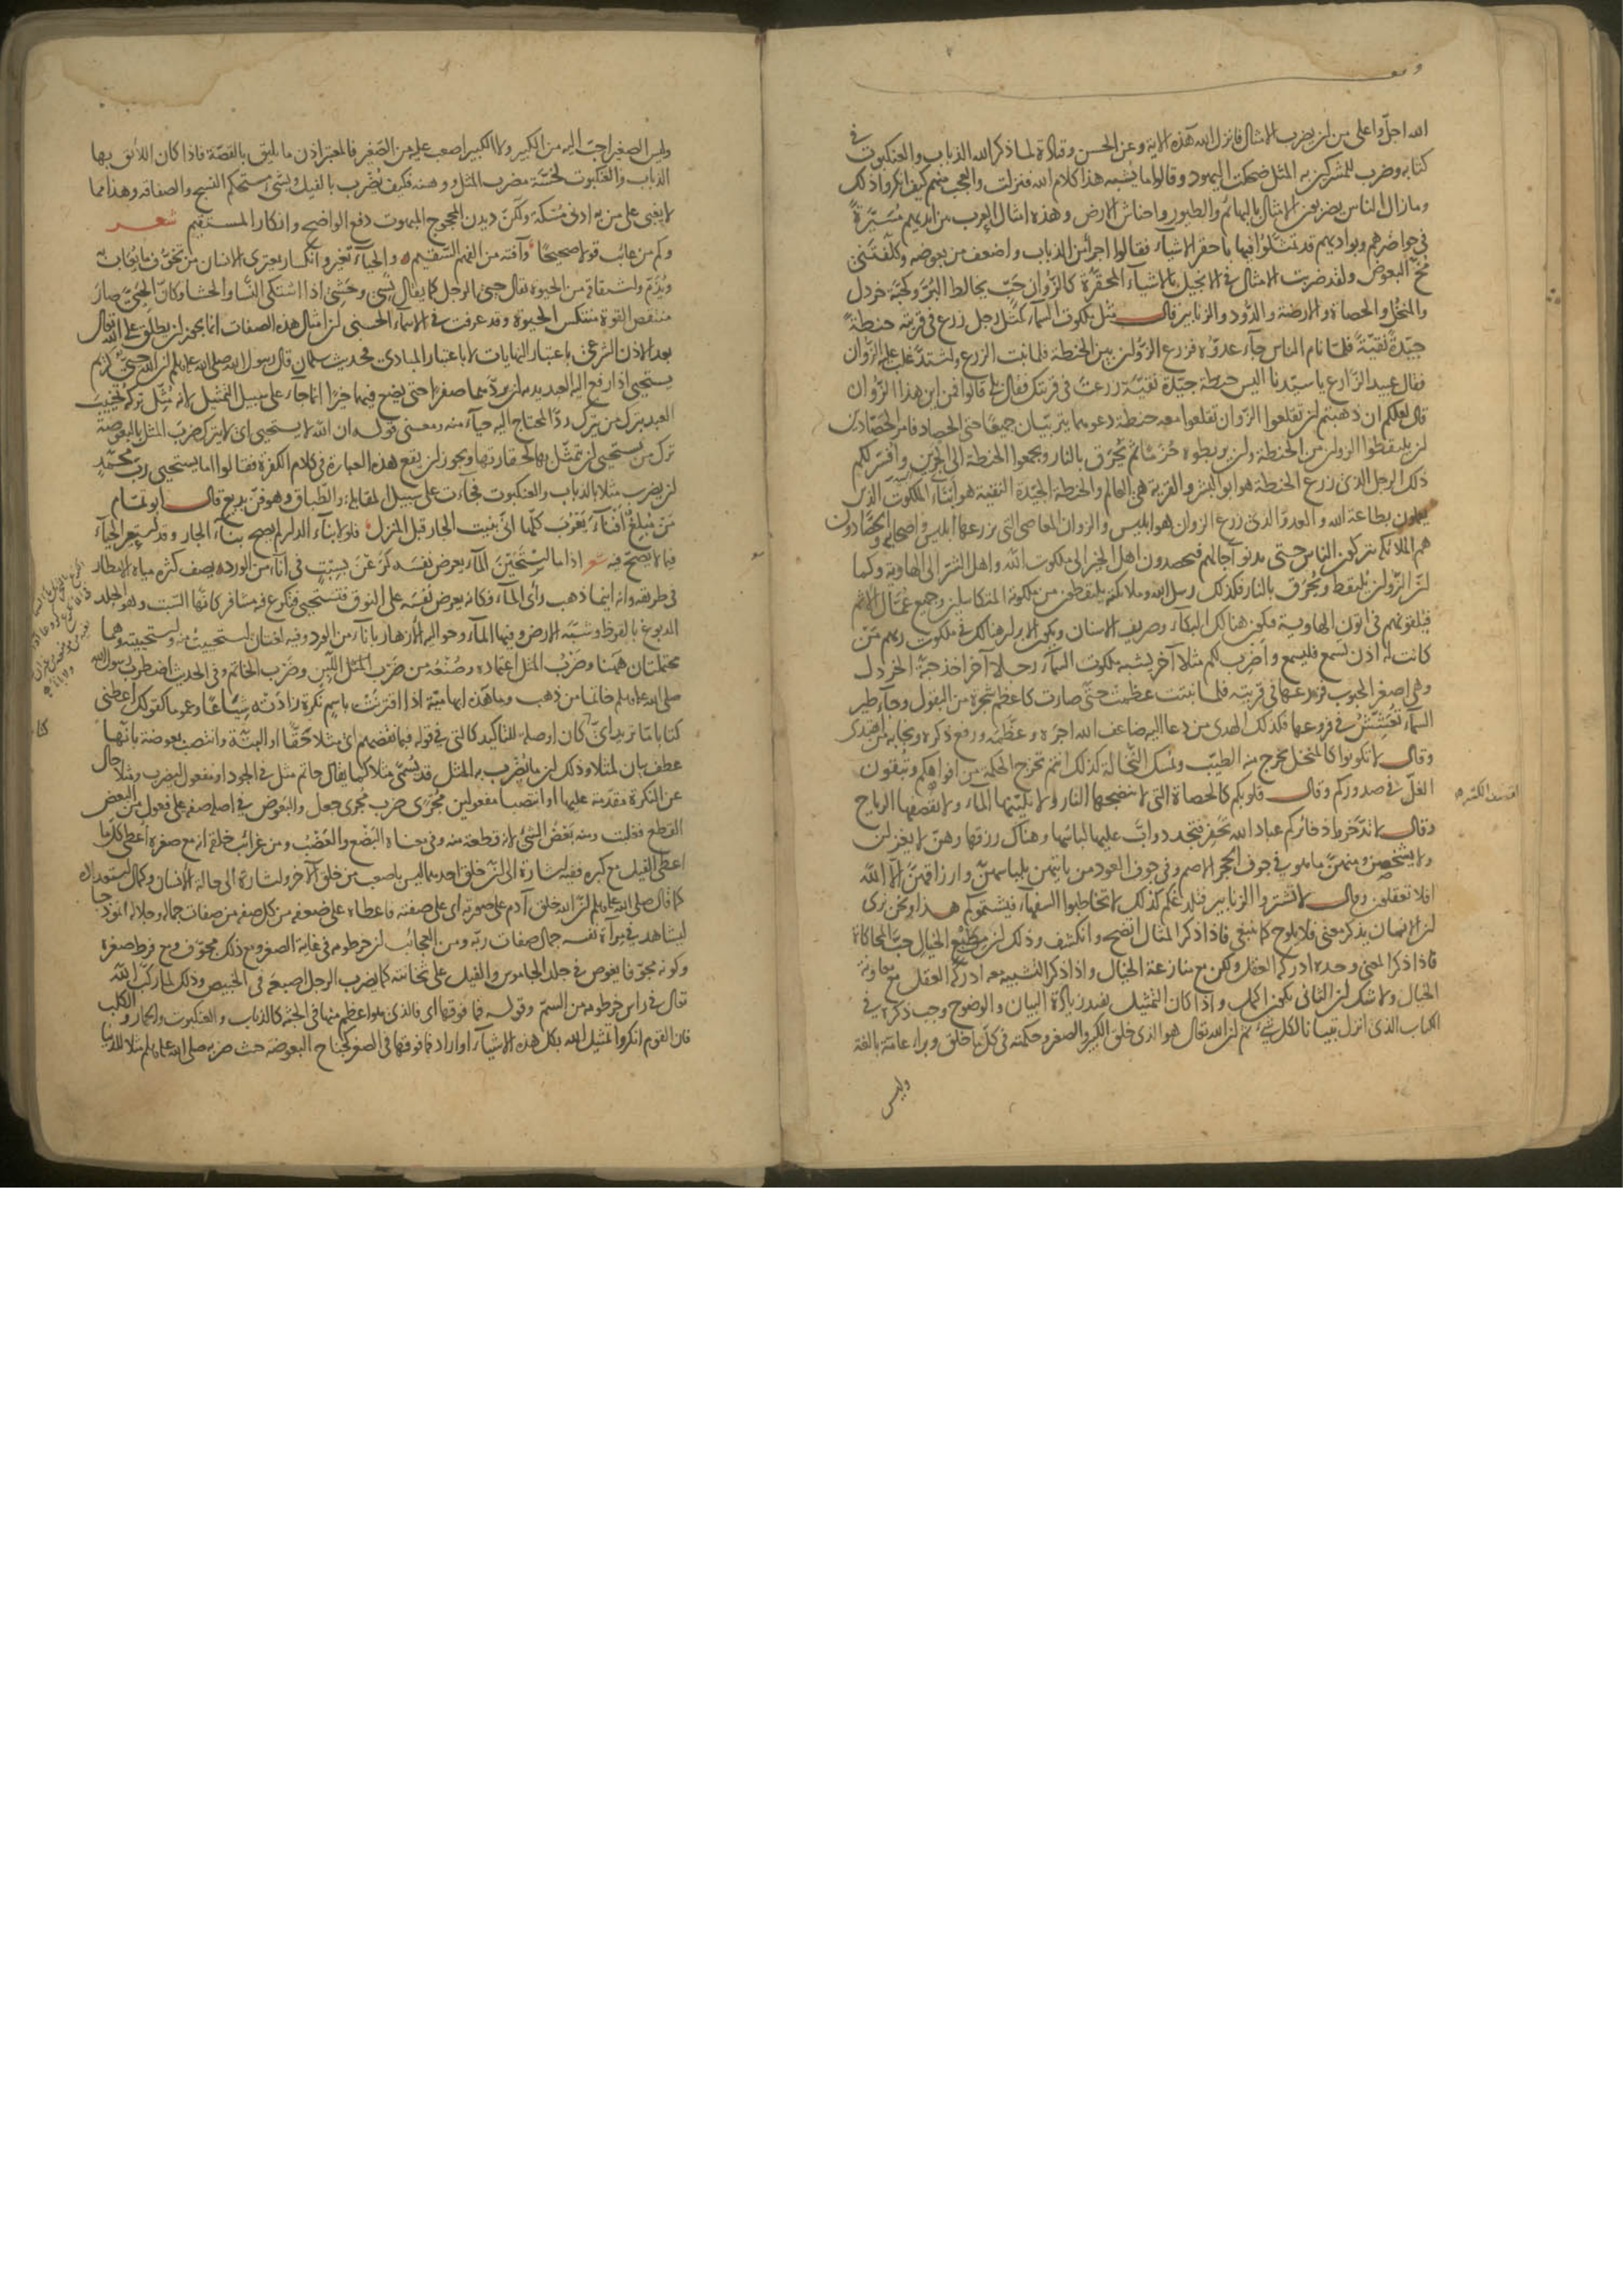 الله اجل واعلى من ان يضرب الامثال فانزل الله هذه الاية وعن الحسن وقتادة لما ذكر الله الذباب والعنكبوت في
كتابه وضرب للمشركين به المثل ضحكت اليهود وقالوا ما يشبه هذا كلام الله فنزلت والعجب منهم كيف انكروا ذلك
وما زال الناس يضربون الامثال بالبهائم والطيور واحناش الارض وهذه امثال العرب بين ايديهم مُسَيَّرةً
في حواضرهم وبواديهم قد تمثلوا فيها باحقر الاشياء فقالوا اجرأ من الذباب واضعف من بعوضه وكلّفتنى
مُخَّ البعوض ولقد ضربت الامثال في الانجيل بالاشياء المحقّرة كالزُّوان حَبّ يخالط البُرّ وكحبّة خردل
والمنخُل والحصاة والارضة والدّود والزنابير قال مثل ملكوت السماء كمثل رجل زرع في قريته حنطةً
جيّدةً نقيّةً فلما نام الناس جاء عدوّه فزرع الزّوان بين الحنطة فلما نبت الزرع واشتدّ غلب عليه الزّوان
فقال عبيد الزّارع يا سيّدنا اليس حنطة جيّدة نقيّة زرعتَ في قريتك فقال بلى قالوا فمن اين هذا الزُّوان
قال لعلكم ان ذهبتم ان تقلعوا الزّوان تقلعوا معه حنطة دعوهما يتربّيان جميعًا حتى الحصاد فامر الحصّادين
ان يلتقطوا الزوان من الحنطة وان يربطوه حُزَمًا ثم يُحرق بالنار ويجمعوا الحنطة الى الجُرن وافسّر لكم
ذلك الرجل الذى زرع الحنطة هو ابو البشر والقرية هى العالم والحنطة الجيّدة النقية هو ابناء الملكوت الذين
يعملون بطاعة الله والعدوّ الذى زرع الزوان هو ابليس والزوان المعاصى التى يزرعها ابليس واصحابه والحصّادون
هم الملائكة يتركون الناس حتى تدنو آجالهم فيحصدون اهل الخير الى ملكوت الله واهل الشرّ الى الهاوية وكما
ان الزّوان يُلتقط ويُحرق بالنار فكذلك رسل الله وملائكته يلتقطون من ملكوته المتكاسلين وجميع عُمّال الاثم
فيلقونهم في اتون الهاوية فيكون هنالك البكاء وصريف الاسنان ويكون الابرار هنالك في ملكوت ربهم مَن
كانت له اذن تسمع فليسمع واضرب لكم مثلا آخر يشبه ملكوت السماء رجلا آخر اخذ حبة الخردل
وهى اصغر الحبوب فزرعها في قريته فلما نبتت عظمت حتى صارت كاعظم شجرة من البقول وجاء طير
السماء تُعشّشُ في فروعها فكذلك الهدى من دعا اليه ضاعف الله اجره وعظّمه ورفع ذكره ونجا به من اهتدى
وقال لا تكونوا كالمنخل يخرج منه الطيّب ويُمسك النّخالة كذلك انتم تخرج الحكمة من افواهكم وتُبقون
الغلّ في صدوركم وقال قلوبكم كالحصاة التى لا تنضجها النار ولا يُليّنها الماء ولا تُنسفها الرياح
وقال لا تدّخروا ذخائركم
افلا تعقلون وقال لا تُثيروا الزنابير فتلدغكم كذلك لا تخاطبوا السفهاء فيشتموكم هذا ونحن نرى
ان الانسان يذكر معنى فلا يلوح كما ينبغى فاذا ذكر المثال اتضح وانكشف وذلك ان من طَبْع الخيال حبّ المحاكاة
فاذا ذكر المعنى وحده ادركه العقل ولكن مع منازعة الخيال واذا ذكر التشبيه معه ادركه العقل مع معاونة
الخيال ولا شك ان الثانى يكون اكمل واذا كان التمثيل يفيد زيادة البيان والوضوح وجب ذكره في
الكتاب الذى انزل تبيانا لكل شئ ثم ان الله تعالى هو الذى خلق الكبير والصغير وحكمته في كل ما خلق وبرأ عامّة بالغة
وليس
وليس الصغير احبّ اليه من الكبير ولا الكبير اصعب عليه من الصّغير فالمعتبر اذن ما يليق بالقصّة فاذا كان اللائق بها
الذباب والعنكبوت لخسّة مضرب المثل ووهنه فكيف يُضرب بالفيل وشئ مستحكم النسج والصفاقه وهذا مما
لا يغبى على من به ادنى مُسْكة ولكن ديدن المحجوج المبهوت دفع الواضح وانكار المستقيم شعر
وكم من عائب قولا صحيحًا وآفته من الفهم السّقيم والحياء تغيّر وانكسار يعترى الانسان من تخوّف ما يُعاب به
ويُذمّ واشتقاقه من الحيوة يقال حيى الرجل كما يقال نَسِى وحَشِى اذا اشتكى النَّسا والحشا وكانّ الحيىّ صار
منتقص القوة منتكس الحيوة وقد عرفت في الاسماء الحسنى ان امثال هذه الصفات انما يجوز ان يطلق على الله تعالى
بعد الاذن الشرعى باعتبار النهايات لا باعتبار المبادى فحديث سلمان قال رسول الله صلى الله عليه وسلم ان الله حيىّ كريم
يستحيى اذا رفع اليه العبد يديه ان يردّهما صفرًا حتى يضع فيهما خيرًا انما جاء على سبيل التمثيل لانه مُثّل تركه تخييب
العبد بترك من يترك ردّ المحتاج اليه حياء منه ومعنى قوله ان الله لا يستحيى اى لا يترك ضرب المثل بالبعوضة
ترك من يستحيى ان يتمثّل بها لحقارتها ويجوز ان يقع هذه العبارة في كلام الكفرة فقالوا اما يستحيى ربّ محمّد
ان يضرب مثلا بالذباب والعنكبوت فجاءت على سبيل المقابلة والطباق وهو فنّ بديع قال ابو تمّام
مَن مُبلِغٌ اَفناءَ يَعْرُب كلّها انّى بنيت الجار قبل المنزل فلولا بناء الدار لم يصح بناء الجار وقد استعير الحياء
فيما لا يصحّ فيه شعر اذا ما استَحَيْنَ الماء يعرض نفسه كَرَعْنَ بسِبْتٍ في اناء من الورد يصف كثره مياه الامطار
في طريقه وانه اينما ذهب رأى الماء فكانّه يعرض نفسَه على النوق فتستحيى فتكرع فيه بمشافر كانّها السّبت وهو الجلد
المدبوغ بالقرظ وشبّه الارض وفيها الماء وحواليه الازهار باناء من الورد وفيه لغتان استحييتُ منه واستحييته وهما
محتملتان ههنا وضَرْب المثل اعتماده وصُنْعُه من ضَرْب اللَّبِن وضَرْب الخاتم وفي الحديث اضطرب رسول الله
صلى الله عليه وسلم خاتما من ذهب وما هذه ابهاميّة اذا اقترنتْ باسم نكرة زادَتْه شياعًا وعموما كقولك اعطنى
كتابًا مّا تريد اىّ كان او صلة للتاكيد كالتى في قوله فبما نقضهم اى مثلا حَقًّا او البتّة وانتصب بعوضة بانّها
عطف بيان لمثلا وذلك ان ما يُضرب به المثل قد يُسمّى مثلا كما يقال حاتم مثل في الجود او مفعول ليضرب ومثلا حال
عن النكرة مقدّمة عليها او انتصبا مفعولين لمُجرى ضرب مُجرى جعل والبعوض في اصله صفة على فعول من البعض
القطع فغلبت ومنه بَعْضُ الشئ لانه قطعة منه وفي معناه البَضْع والعَضْب ومن غرائب خلقه انه مع صغره اُعطى كلّ ما
اعطى الفيل مع كبره ففيه اشارة الى ان خلق احدهما ليس باصعب من خلق الآخر واشارة الى حالة الانسان وكمال استعداده
كما قال صلى الله عليه وسلم ان الله خلق آدم على صورته اى على صفته فاعطاه على ضعفه من كل صفة من صفات جماله وجلاله انموذجا
ليشاهد في مرآة نفسه جمال صفات ربّه ومن العجائب ان خرطومه في غاية الصغر ومع ذلك مجوّف ومع فرط صغره
وكونه مجوّفا يغوص في جلد الجاموس والفيل على ثخانته كما يضرب الرجل اصبعه في الخبيص وذلك لما ركّب الله
تعالى في راس خرطومه من السمّ وقوله فما فوقها اى فالذى هو اعظم منها في الجثّة كالذباب والعنكبوت والحمار والكلب
فان القوم انكروا تمثيل الله بكل هذه الاشياء او اراد فما فوقها في الصغر كجناح البعوضة حيث ضربه صلى الله عليه وسلم مثلا للدنيا